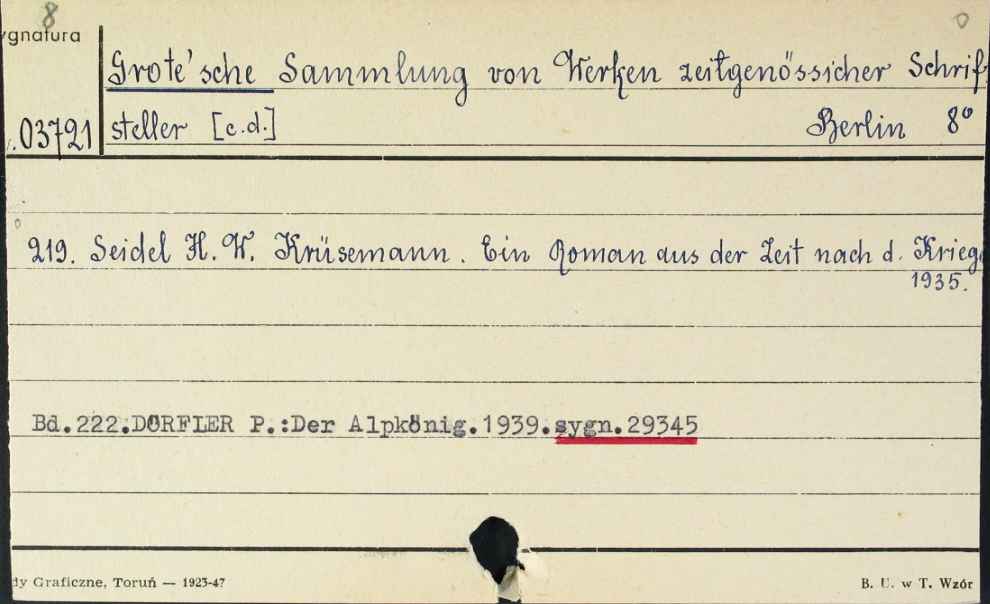 8
ygnatura
Grote'sche Sammlung von Werken zeitgenössicher Schrif-
03721
steller [c.d.]
Berlin 8°
219. Seidel H. W. Krüsemann. Ein Roman aus der Zeit nach d. Krieg
1935.
Bd.222.DÖRFLER P.:Der Alpkönig.1939.sygn.29345
dy Graficzne, Toruń — 1923-47
B. U. w T. Wzór